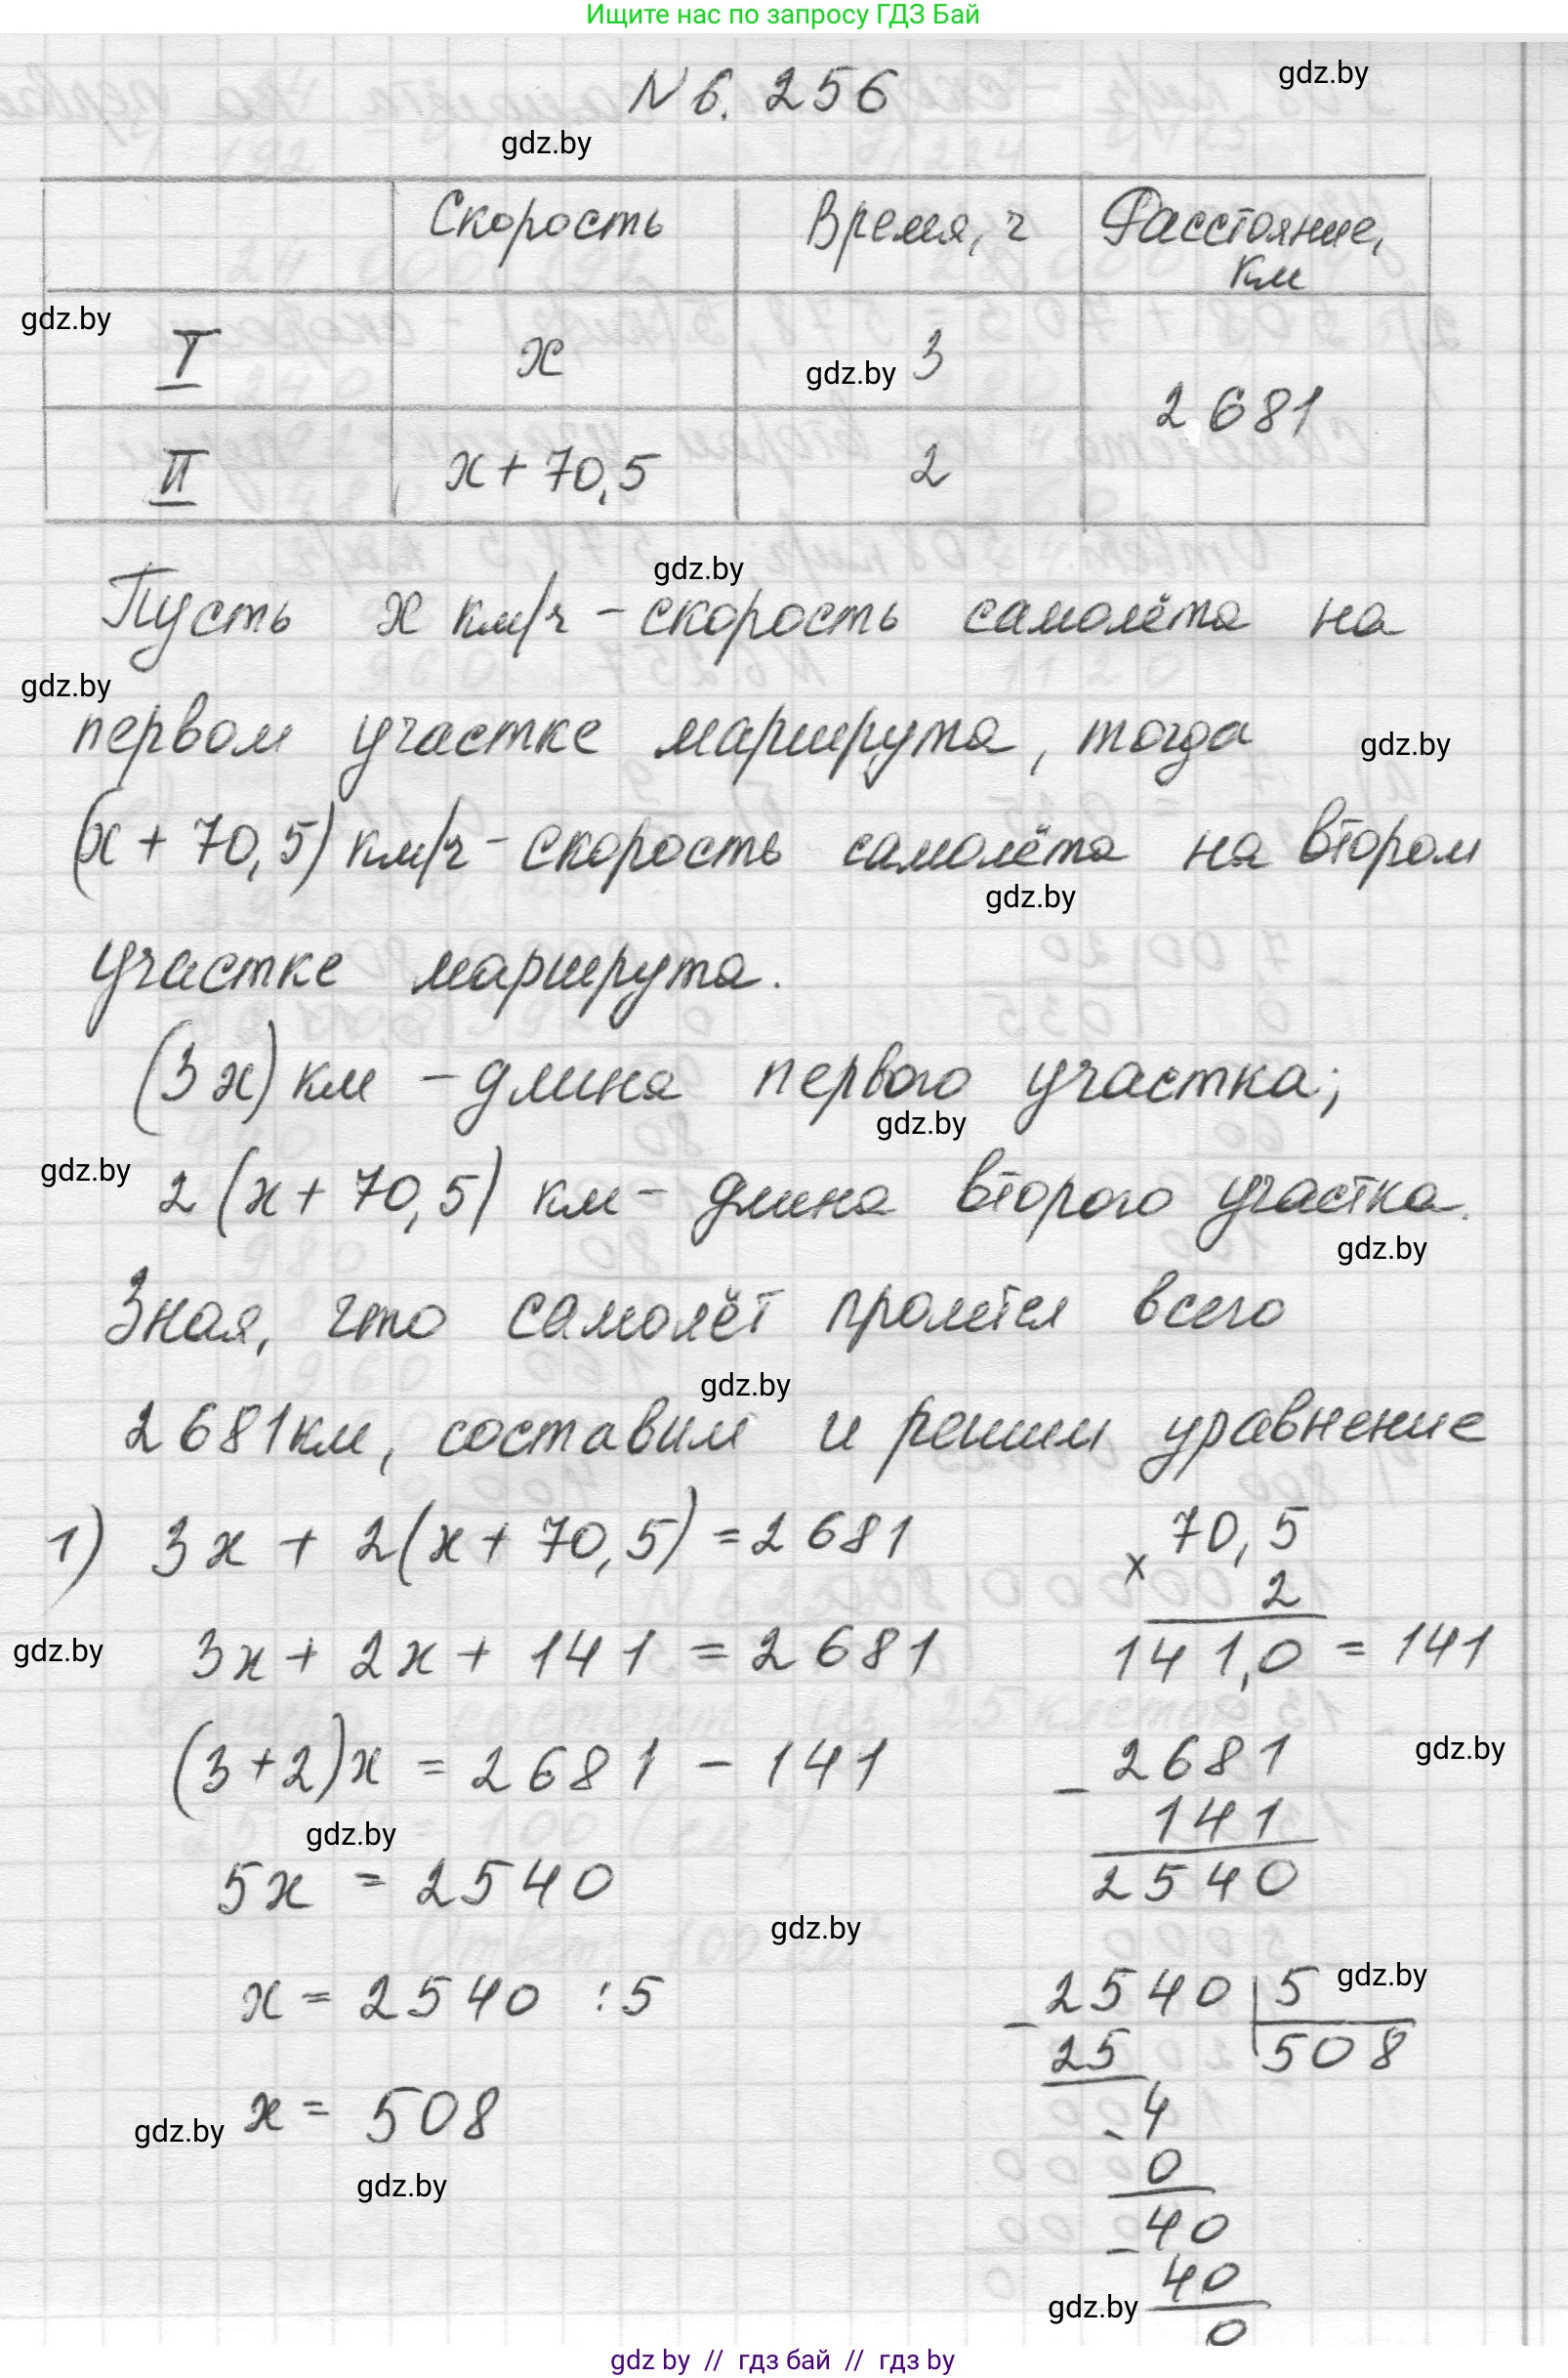 Ищите нас по запросу ГДЗ Бай
gdz.by
N 6. 256
gdz.by
Скорость Время, ч Расстояние, км
gdz.by
I x gdz.by 3
2 681
II x + 70,5 2
gdz.by
Пусть x км/ч - скорость самолёта на
gdz.by
первом участке маршрута, тогда gdz.by
(x + 70,5) км/ч - скорость самолёта на втором
gdz.by
участке маршрута.
(3x) км - длина первого участка;
gdz.by
gdz.by 2 (x + 70,5) км - длина второго участка.
gdz.by
Зная, что самолёт пролетел всего
gdz.by
2 681 км, составим и решим уравнение
1) 3x + 2(x + 70,5) = 2 681
3x + 2x + 141 = 2 681
gdz.by
(3+2)x = 2681 - 141
gdz.by
5x = 2540
gdz.by
x = 2540 : 5
x = 508
gdz.by
gdz.by
70,5
x 2
141,0 = 141
- 2681 gdz.by
141
2540
- 2540 5 gdz.by
25 508
- 4
0
- 40
40
gdz.by
0
gdz by // гдз бай // гдз by